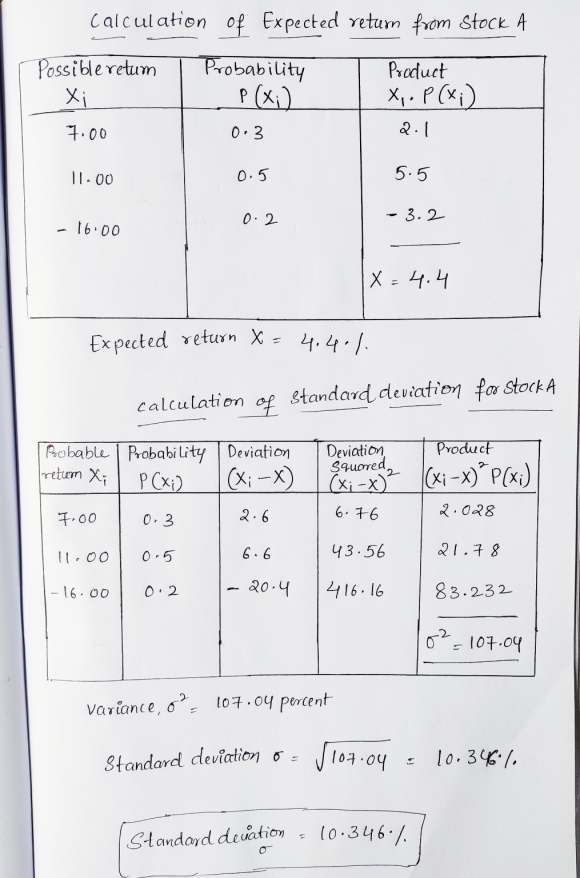 Calculation of Expected return from Stock A
Possible return Xi | Probability P(Xi) | Product X1. P(Xi)
7.00 | 0.3 | 2.1
11.00 | 0.5 | 5.5
- 16.00 | 0.2 | - 3.2
X = 4.4
Expected return X = 4.4.%.
calculation of standard deviation for Stock A
Probable return Xi | Probability P(Xi) | Deviation (Xi - X) | Deviation squared (Xi - X)² | Product (Xi - X)² P(Xi)
7.00 | 0.3 | 2.6 | 6.76 | 2.028
11.00 | 0.5 | 6.6 | 43.56 | 21.78
-16.00 | 0.2 | - 20.4 | 416.16 | 83.232
σ² = 107.04
Variance, σ² = 107.04 percent
Standard deviation σ = √107.04 = 10.346%.
Standard deviation σ = 10.346%.